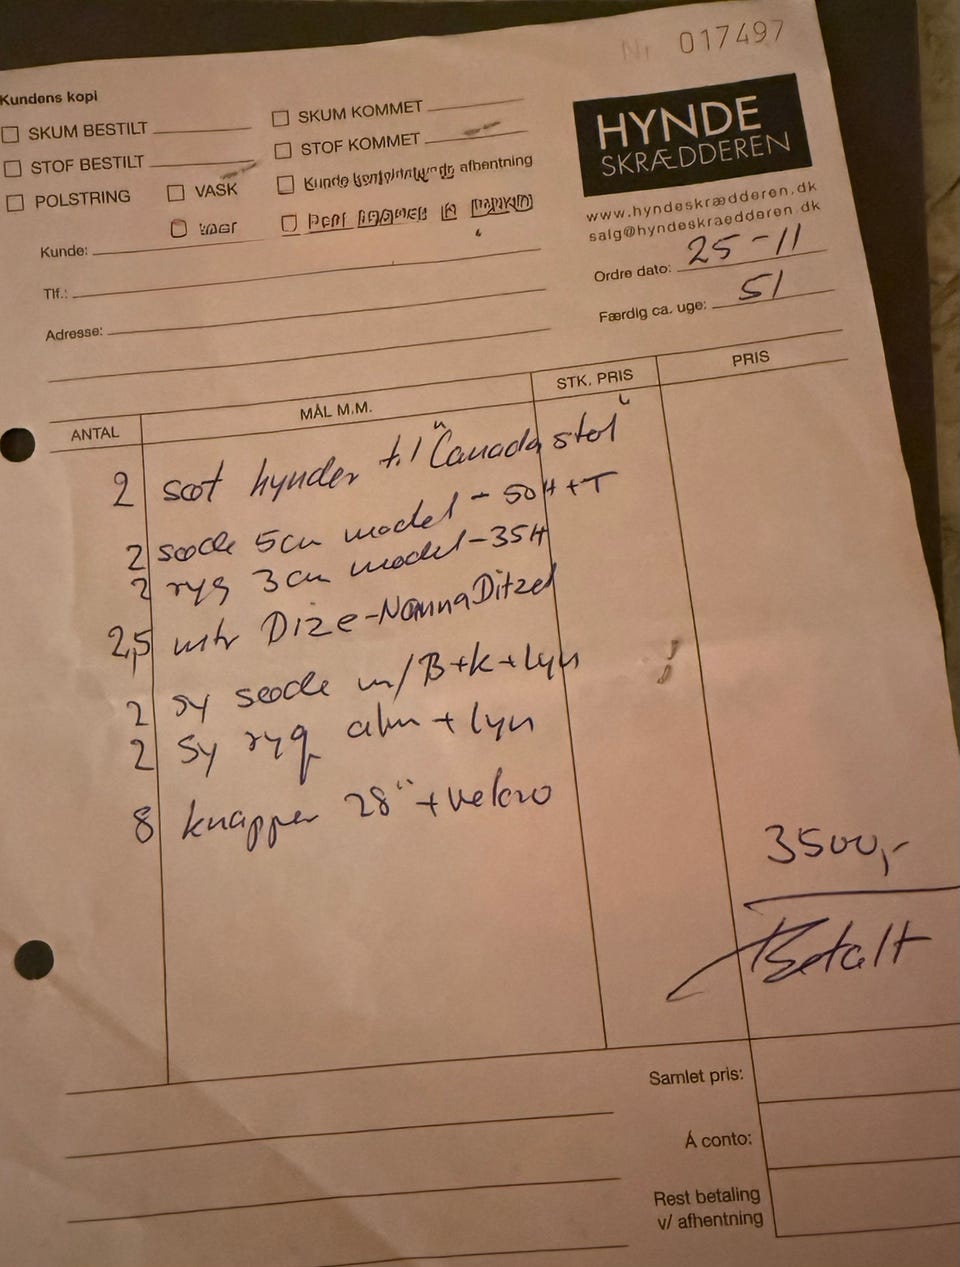 Nr 017497
Kundens kopi
SKUM BESTILT
SKUM KOMMET
STOF BESTILT
STOF KOMMET
POLSTRING
VASK
Kunde afhentning
HYNDE
SKRÆDDEREN
www.hyndeskrædderen.dk
salg@hyndeskraedderen.dk
Kunde:
Tlf.:
Adresse:
Ordre dato: 25-11
Færdig ca. uge: 51
ANTAL MÅL M.M. STK. PRIS PRIS
2 sæt hynder til "Canada stol"
2 sæde 5cm model - 50H+T
2 ryg 3cm model - 35H
2,5 mtr Dize - Nanna Ditzel
2 sy sæde m/B+k+lyn
2 sy ryg alm + lyn
8 knapper 28" + velcro
3500,-
Betalt
Samlet pris:
Á conto:
Rest betaling
v/ afhentning